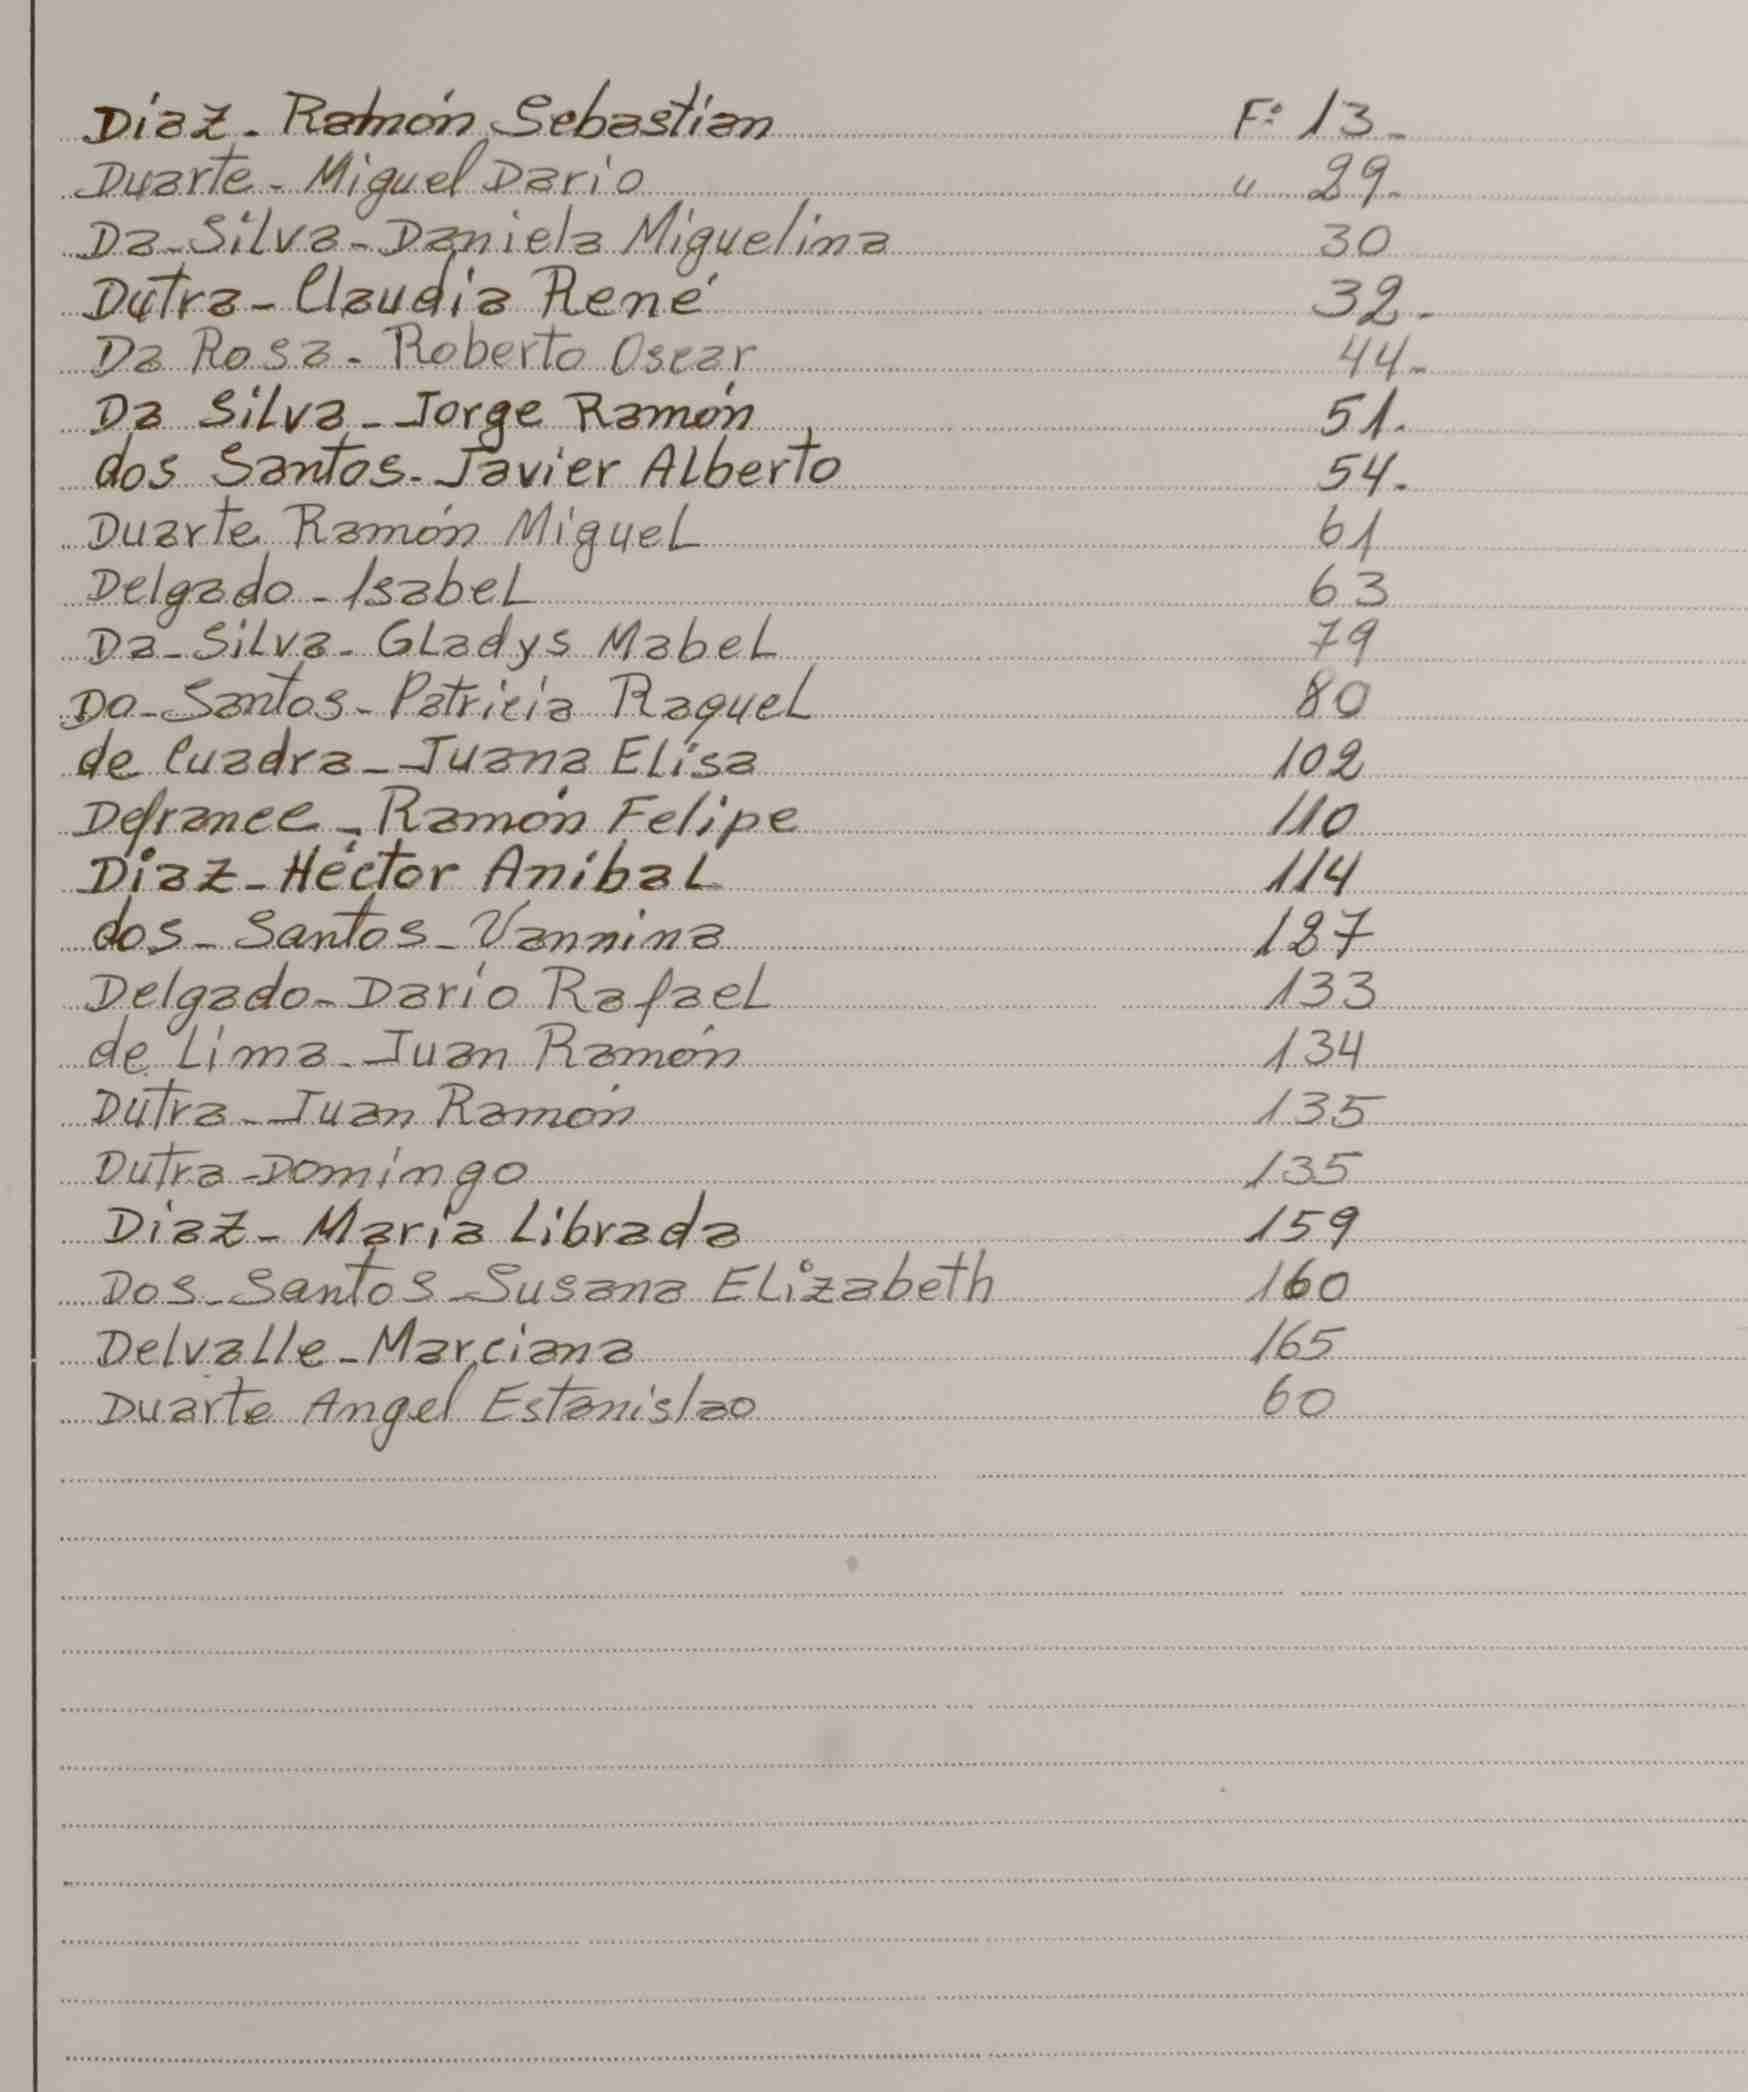 Díaz - Ramón Sebastian F: 13 -
Duarte - Miguel Dario " 29 -
Da - Silva - Daniela Miguelina 30
Dutra - Claudia René 32 -
Da Rosa - Roberto Oscar 44 -
Da Silva - Jorge Ramón 51.
dos Santos - Javier Alberto 54.
Duarte Ramón Miguel 61
Delgado - Isabel 63
Da - Silva - Gladys Mabel 79
Do - Santos - Patricia Raquel 80
de Cuadra - Juana Elisa 102
Defrance - Ramón Felipe 110
Diaz - Héctor Anibal 114
dos - Santos - Vannina 127
Delgado - Darío Rafael 133
de Lima - Juan Ramón 134
Dutra - Juan Ramón 135
Dutra - Domingo 135
Diaz - María Librada 159
Dos - Santos - Susana Elizabeth 160
Delvalle - Marciana 165
Duarte Angel Estanislao 60